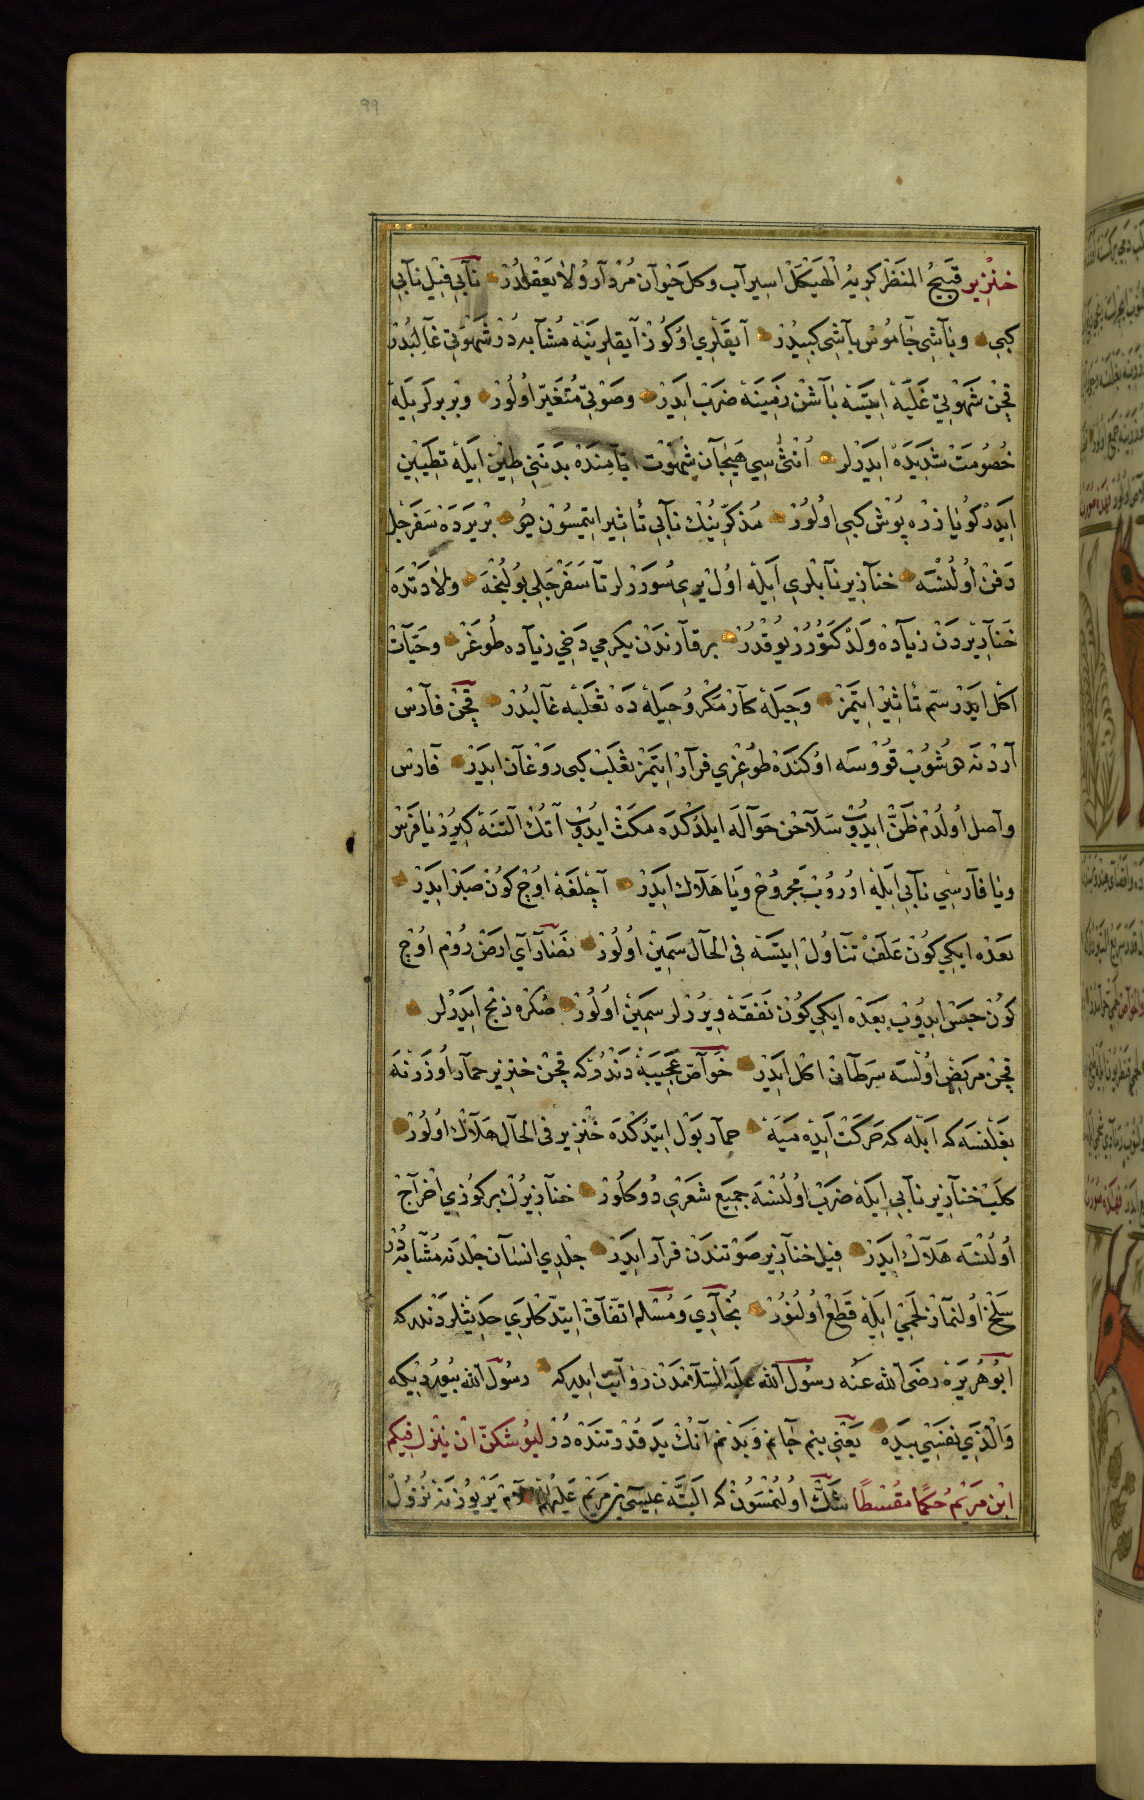 ٩٩
خنزیر قَبیحُ المنَظَر کَریهُ اْلهَیْکَلْ اسیرآب وکلَ حَیْوآن مُرْدآر وُلاٰیَعْقْلْدُرْ نآبی فیْل نآبی
کبی وبٰآشِی جٰآمُوسْ بآشِی کبیدُرْ آیقَلَری اوُکُوزْ آیقلرینَهْ مُشٰآبهدُرْ شَهْوَتی غآلِبْدُرْ
قچْن شَهْوتی غَلَبَهٔ ایتَسَهْ بٰآشْنْ زمِینَهٔ ضَربْ ایَدَرْ وصَوْتِی مُتَغَیّرْ اولُورْ وبْربرلَرَیلَهْ
خُصُومَتْ شَدیَدَهْ ایَدَرْلر اُنثیٰ سِی هَیَجٰآن شَهوْت ایّٰآمِنْدَهْ بَدنَنِی طِین ایَلهٔ تطَیین
ایَدَرْ کویٰا زرَه پُوشْ کبِی اولُورْ مُذکَرِینُكْ نآبِی تٔاثیر ایتمسُونْ دیُو بْریَردَهْ سَفَرجَل
دَفنْ اوُلُنْسَه خنآزیر نآبلَری ایَلهٔ اوُل یَری سُورَرْلر تآ سَفَرْجَلی بوُلُنْجَهَ ولاٰدَتْدَهٔ
خَنآزیرْدَنْ زیٰآدَه وَلَدْ کتَوُّرُر یُوقْدُرْ بر قآرنْدَنْ یکرمِی دَخِی زیٰآده طُوغَرْ وحَیّآتْ
اکل ایَدَرْ سمّ تأثِیْر ایتَمَزْ وَحِیلَهٔ کآر مَکْر وُحِیلَهٔ دَهْ ثعَلَبَه غآلبْدُرْ قچنْ فآرسْ
آرْدنَه دوُشُوبْ قوُوْسَه اوُکنْدَهْ طوُغْرِی فرآر ایتَمَزْ ثعْلَبْ کبی رَوَغآن ایَدَرْ فآرسْ
وآصل اوُلدُمْ ظَنَّ ایدُوْبْ سَلآحْن حَوآلَهَ ایلَدُکْدَه مَکَثْ ایدُوْبْ آتُكْ آلتنَهٔ کیرُرْ یا قرنَنْ
ویا فآرسِیْ نآبِی ایَلهٔ اوُرُوبْ مَجروُحْ ویا هَلاكْ ایَدَرْ آچْلغَهْ اوُچ کوُنْ صَبْر ایَدَرْ
بعَدَه ایکِی کوُنْ عَلَفْ تَنآوُلْ ایتَسَه فی الحآل سَمِینْ اوُلُورْ نَصٰآرَآیِ ارضْ رُومْ اوُچ
کوُنْ حبَسْ ایدُوْبْ بعَدَه ایکی کوُن نَفَقَه وِیرُرْلر سَمینْ اوُلُورْ صُکْرَه ذبْح ایَدَرْلر
قچن مریَضْ اوُلْسَه سَرَطآن اکْل ایَدَرْ خَوٰآصّ عَجیبَهْ دَنْدُرْکه قچنْ خنزیر حمآر اوُزَرْنَه
بغَلَنْسَه که اَیلَه که حَرکَتْ ایدَه مَیَه حمآر بَوْل ایتدُکْدَه خْنزیر فی الحآل هَلآكْ اوُلُورْ
کَلَبْ خنآزیر نآبی ایلَه ضَربْ اوُلُنْسَه جمیَع شَعَری دوُکلُورْ خنآزیرُكْ برکوُزِی اخْرآجْ
اوُلُنْسَه هَلآكْ ایَدَرْ فِیل خنآزیر صَوْتندَنْ فرآر ایَدَرْ جْلدِی انسٰآن جْلدَنه مُشٰآبهدُرْ
سَلخْ اوُلنمآز لَحمَیْ ایَلهٔ قَطعْ اوُلُنُورْ بُخٰآرِی وَمُسْلم اتّفَآقْ ایتدّکلَری حَدِیثلرَدْندرکه
ابُوهُرَیرَهْ رضَی الله عَنه رسوُل الله علَیه السّلامدَنْ روٰآیَتْ ایدرکه رسوُل الله بیوُردیکه
وَالَّذِی نَفْسِیْ بیدِه یَعْنِی بنم جٰآنم وَبَدنم آنكْ یَدِ قُدْرتنَدَهْ دُرْ لیوُشکَنَّ انْ یَنْزلَ فیِکم
ابْن مَریَمُ حَکَمًا مُقْسِطًا شَكْ اوُلُنمسُونْ که البَتَّه عیسَی بن مَریَم یرَ یوُزنَه نُزوُلْ